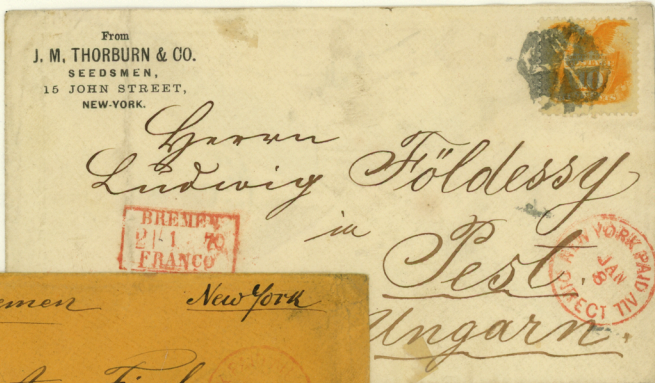 From
J. M. THORBURN & CO.
SEEDSMEN,
15 JOHN STREET,
NEW-YORK.
Herrn
Ludwig Földessy
in
Pest.
Ungarn.
BREMEN
21 1 70
FRANCO
NEW YORK PAID
JAN
6
DIRECT
New York